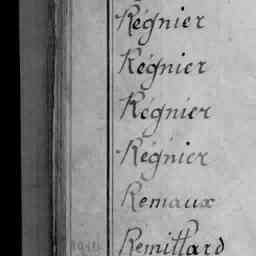 Régnier
Régnier
Régnier
Régnier
Remaux
Remillard